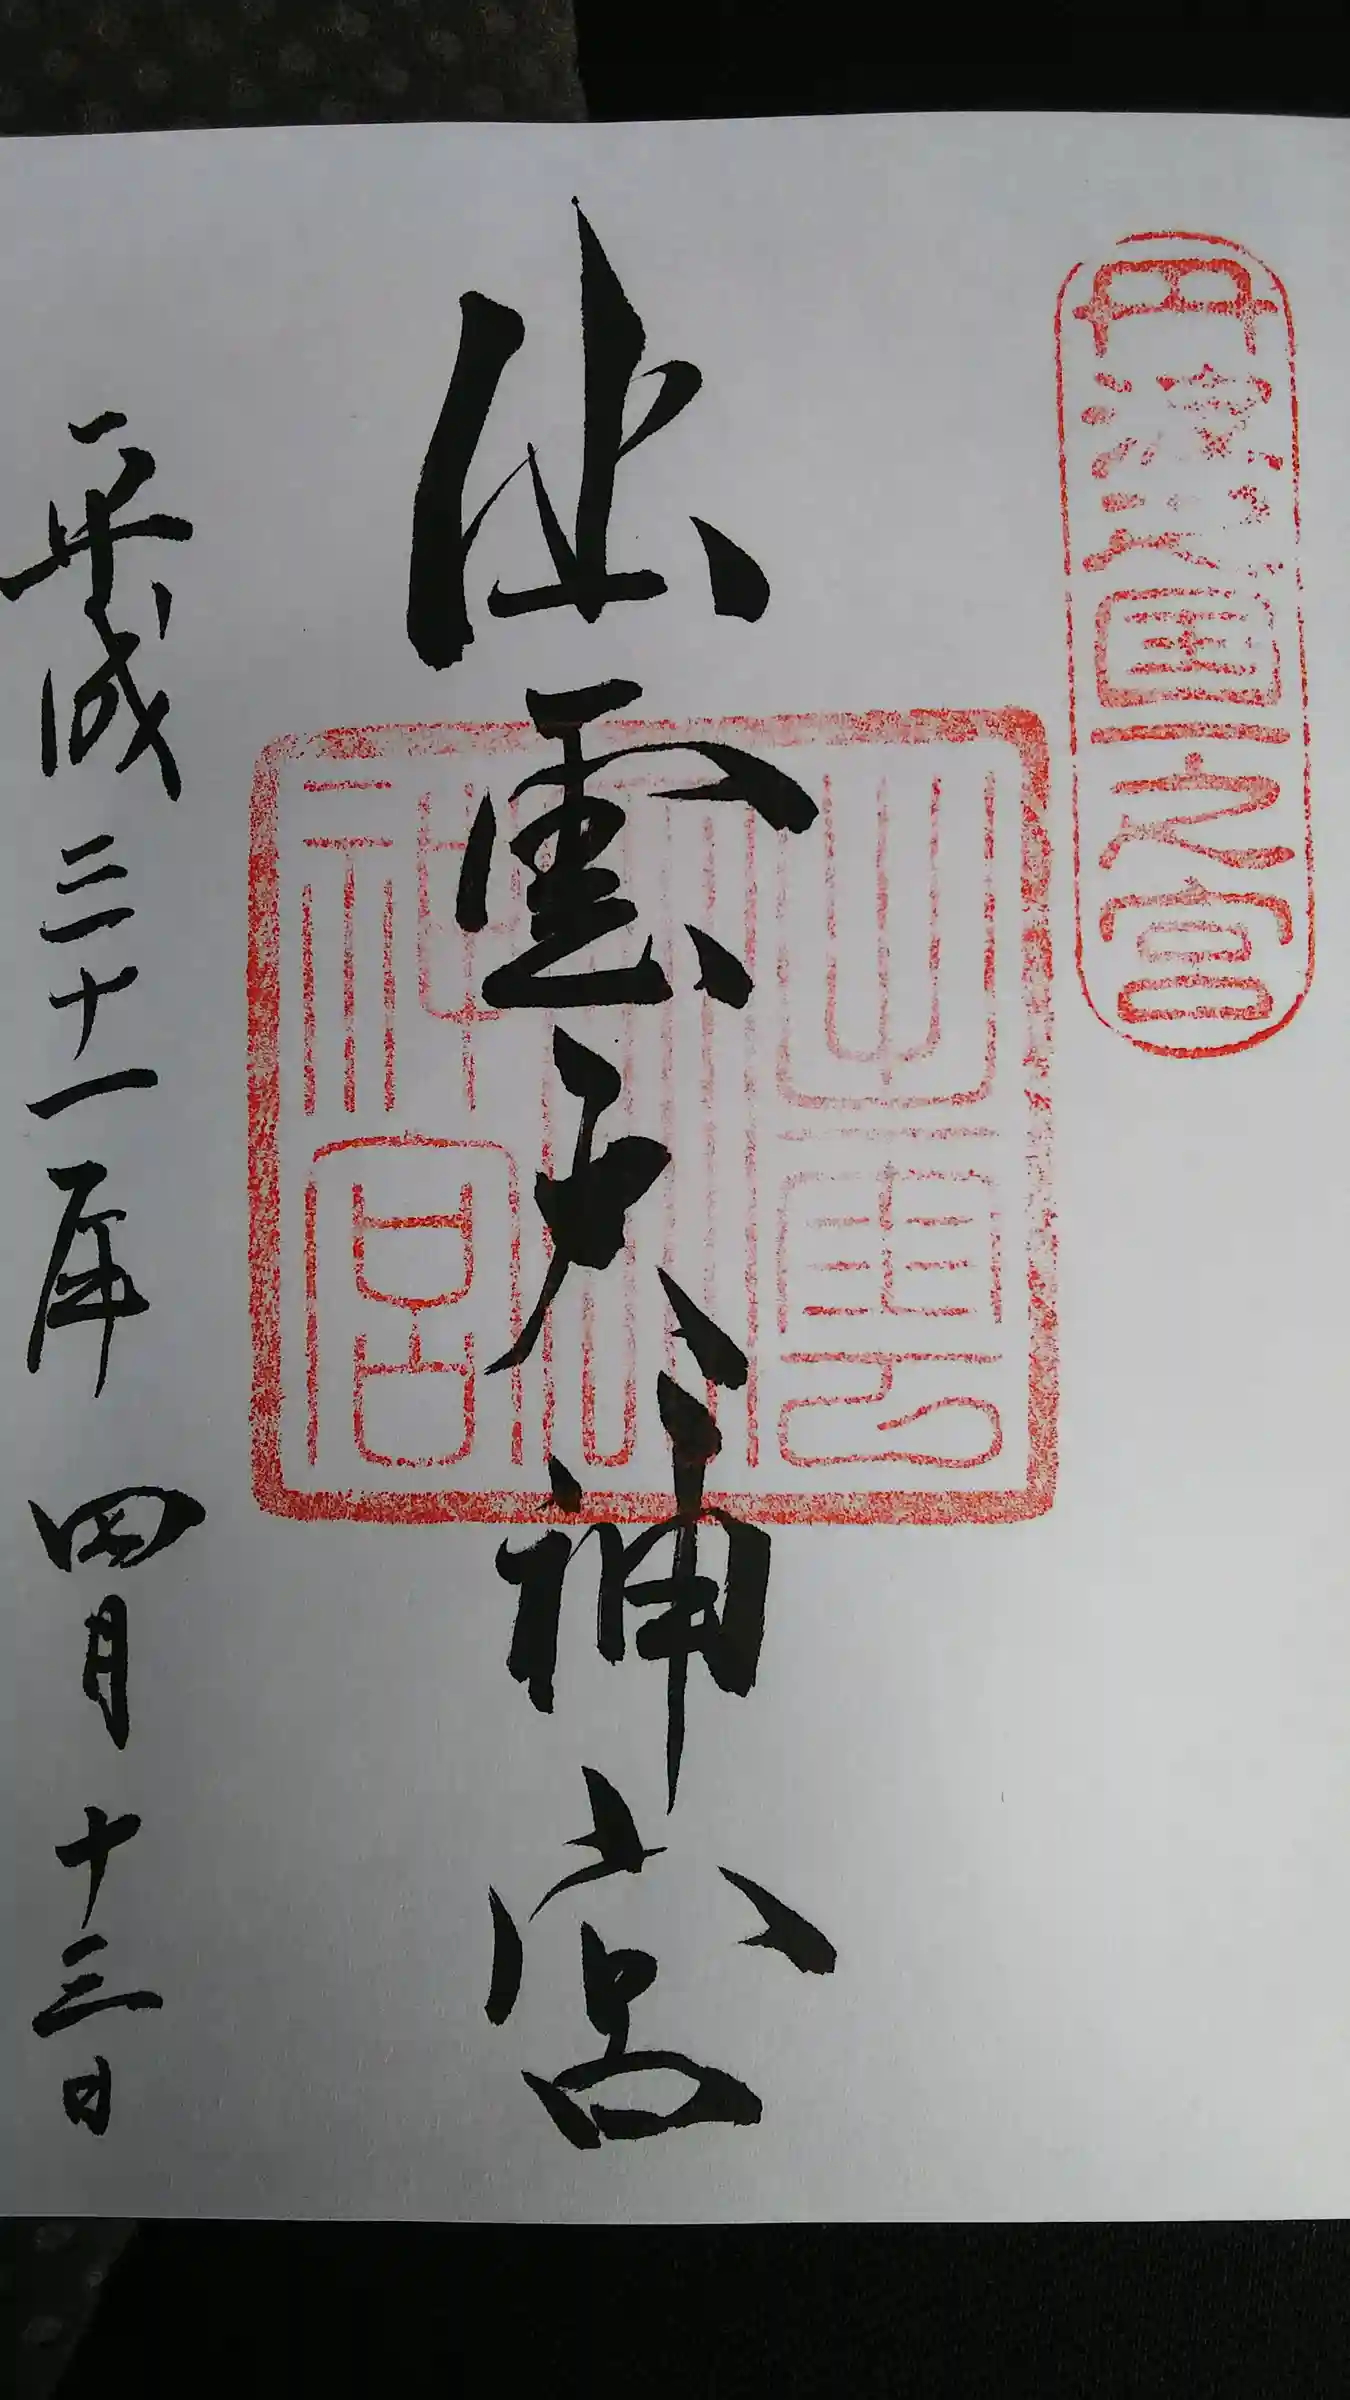 丹波國一之宮
出雲大神宮
出雲
大
神宮
平成三十一年 四月十三日